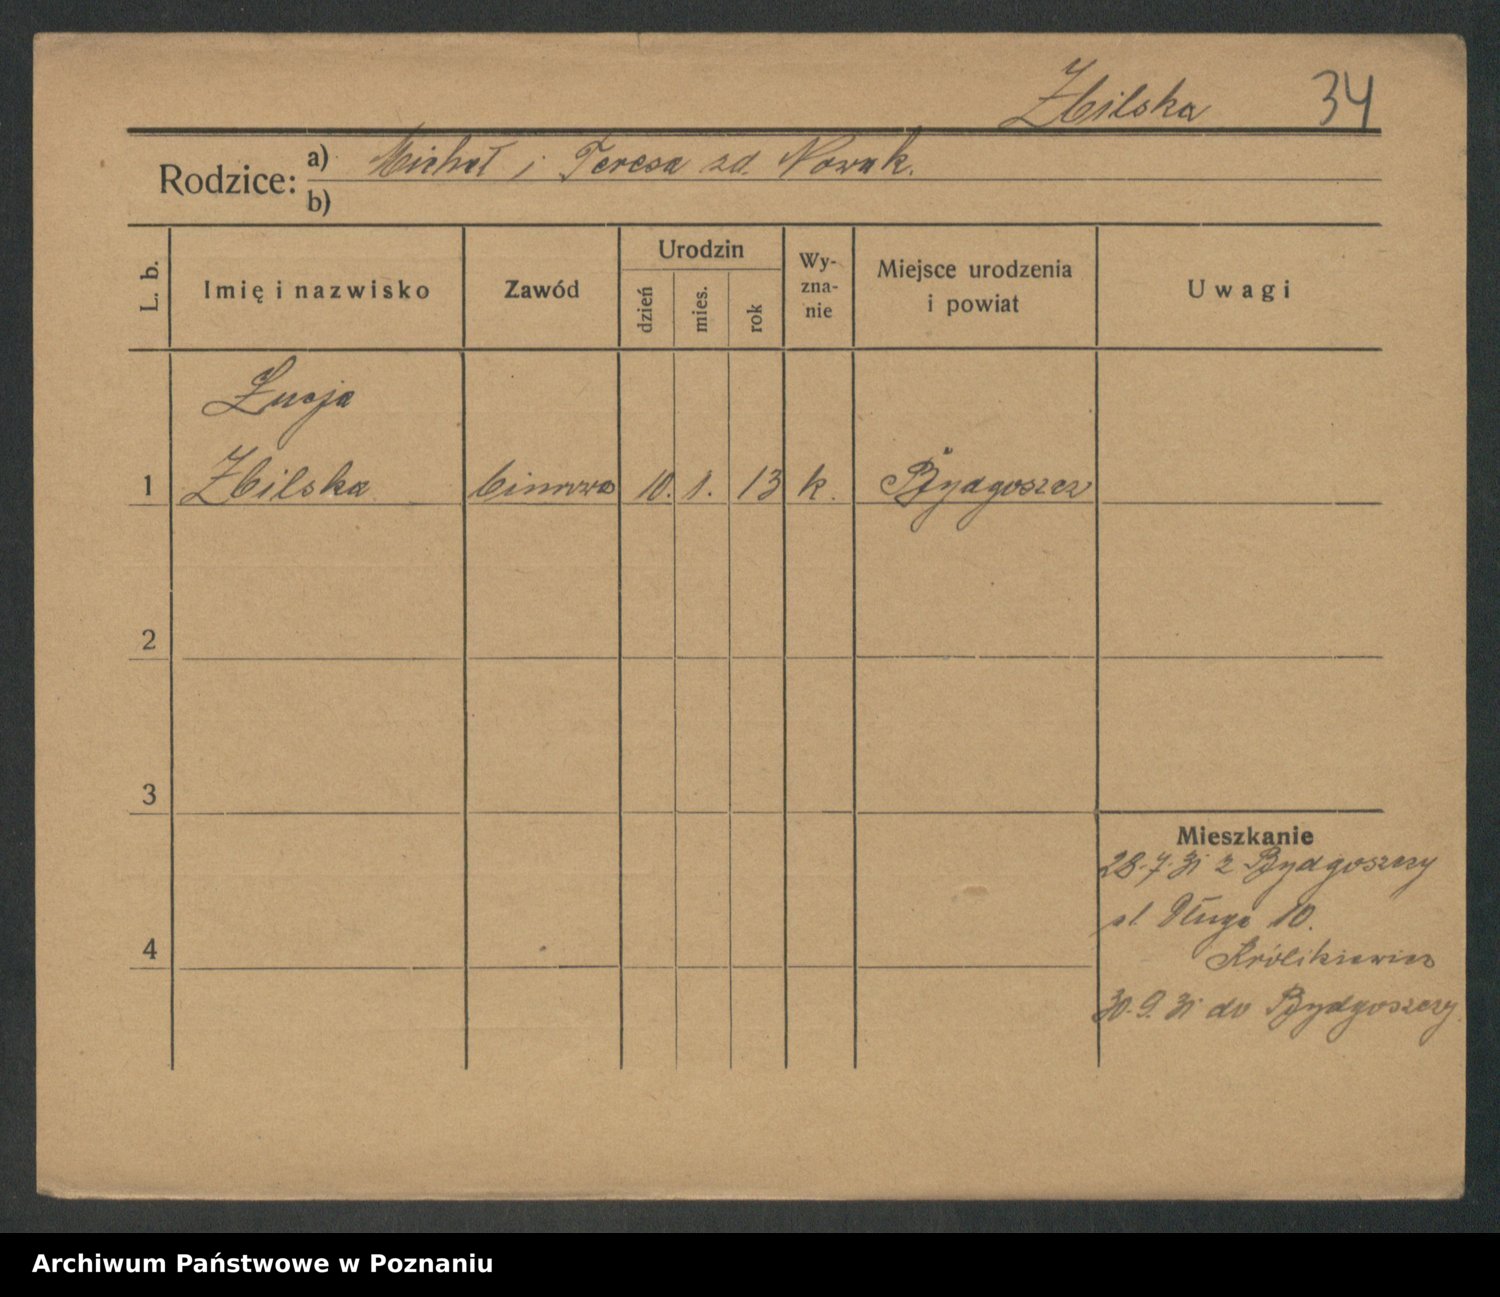 Zbilska 34
Rodzice: a) Michał i Teresa zd. Nowak.
b)
L. b.
Imię i nazwisko
Zawód
Urodzin
dzień
mies.
rok
Wy-
zna-
nie
Miejsce urodzenia
i powiat
Uwagi
Łucja
1 Zbilska biurowa 10. 1. 13 k. Bydgoszcz
2
3
Mieszkanie
28.7.31 z Bydgoszczy
ul Długa 10.
4
Królikiewicz
30.9.31 do Bydgoszczy
Archiwum Państwowe w Poznaniu